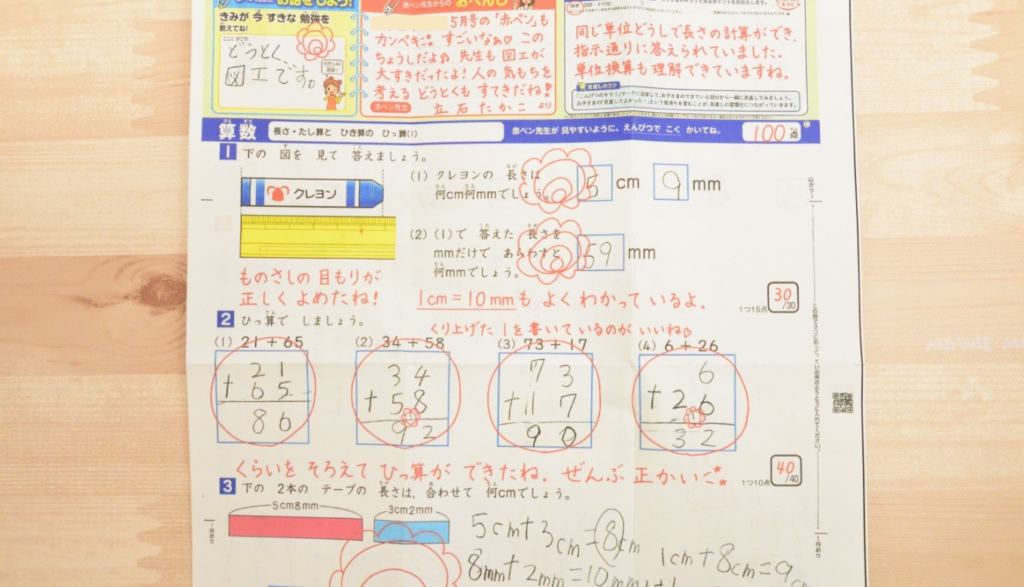 きみが 今 すきな 勉強を
教えてね!
どうとく、
図工です。
赤ペン先生からの
5月号の「赤ペン」も
カンペキ すごいなあ♡ この
ちょうしだよ 先生も 図工が
大すきだったよ! 人の 気もちを
考える どうとくも すてきだね!
赤ペン先生 立石たかこ より
同じ単位どうしで長さの計算ができ、
指示通りに答えられていました。
単位換算も理解できていますね。
算数 長さ・たし算と ひき算の ひっ算(1) 赤ペン先生が 見やすいように、えんぴつで こく かいてね。 100点
1 下の 図を 見て 答えましょう。
クレヨン
(1) クレヨンの 長さは
何cm何mmでしょう。 5 cm 9 mm
(2) (1)で 答えた 長さを
mmだけで あらわすと
何mmでしょう。 59 mm
ものさしの 目もりが
正しく よめたね!
1cm=10mmも よく わかって いるよ。
1つ15点 30/30
2 ひっ算で しましょう。
くり上げた 1を書いているのが いいね♡
(1) 21+65 (2) 34+58 (3) 73+17 (4) 6+26
21 34 73 6
+65 +58 +17 +26
86 92 90 32
くらいを そろえて ひっ算が できたね。ぜんぶ 正かい
1つ10点 40/40
3 下の 2本の テープの 長さは、合わせて 何cmでしょう。
5cm8mm 3cm2mm
5cm+3cm=8cm
8mm+2mm=10mm
1cm+8cm=9cm